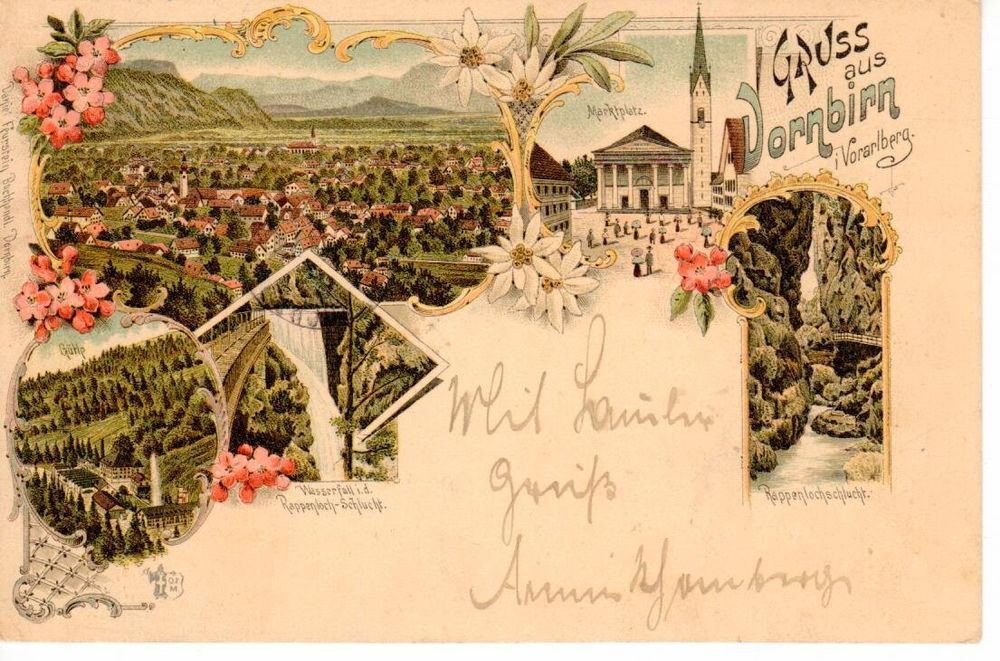 Gruss
aus
Dornbirn
i Vorarlberg.
Marktplatz.
Gütle
Wasserfall i.d.
Rappenloch-Schlucht.
Rappenlochschlucht.
Verlag F. Feurstein, Buchhndl. Dornbirn.
Mit
Gruß